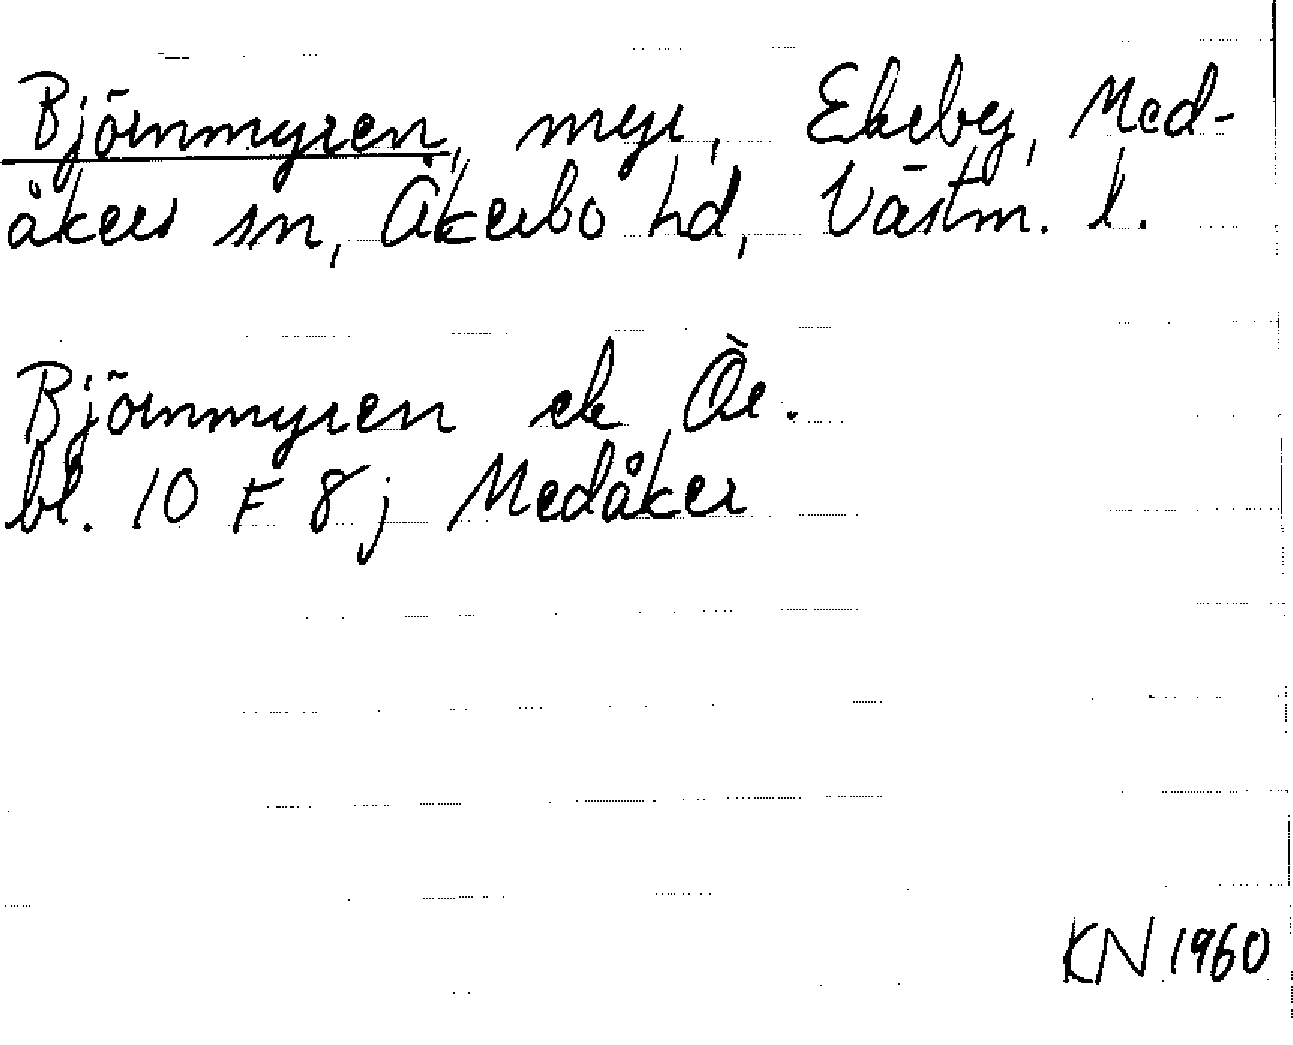 Björnmyren, myr, Ekeby, Med-
åkers sn, Åkerbo hd, Västm. l.
Björnmyren ek
bl. 10 F 8 j Medåker
KN 1960